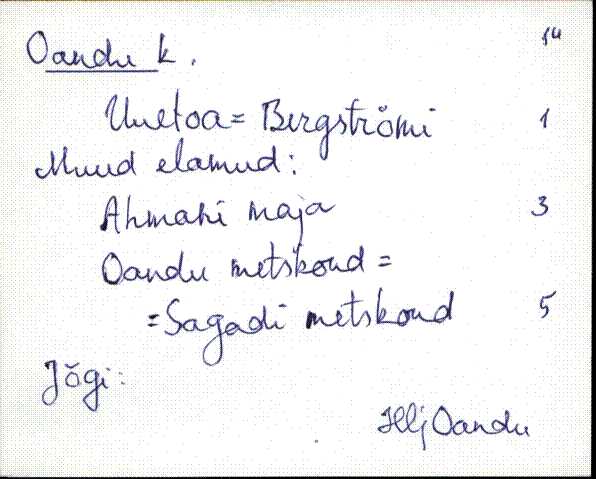 Oandu k. 14
Uuetoa = Bergströmi 1
Muud elamud:
Ahmani maja 3
Oandu metskond =
= Sagadi metskond 5
Jõgi:
Hlj Oandu